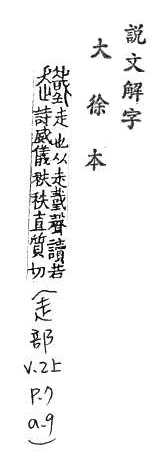 說文解字
大徐本
走也从走𢧜聲讀若
詩威儀秩秩直質切
(走部 v.2上 p.7 a-9)